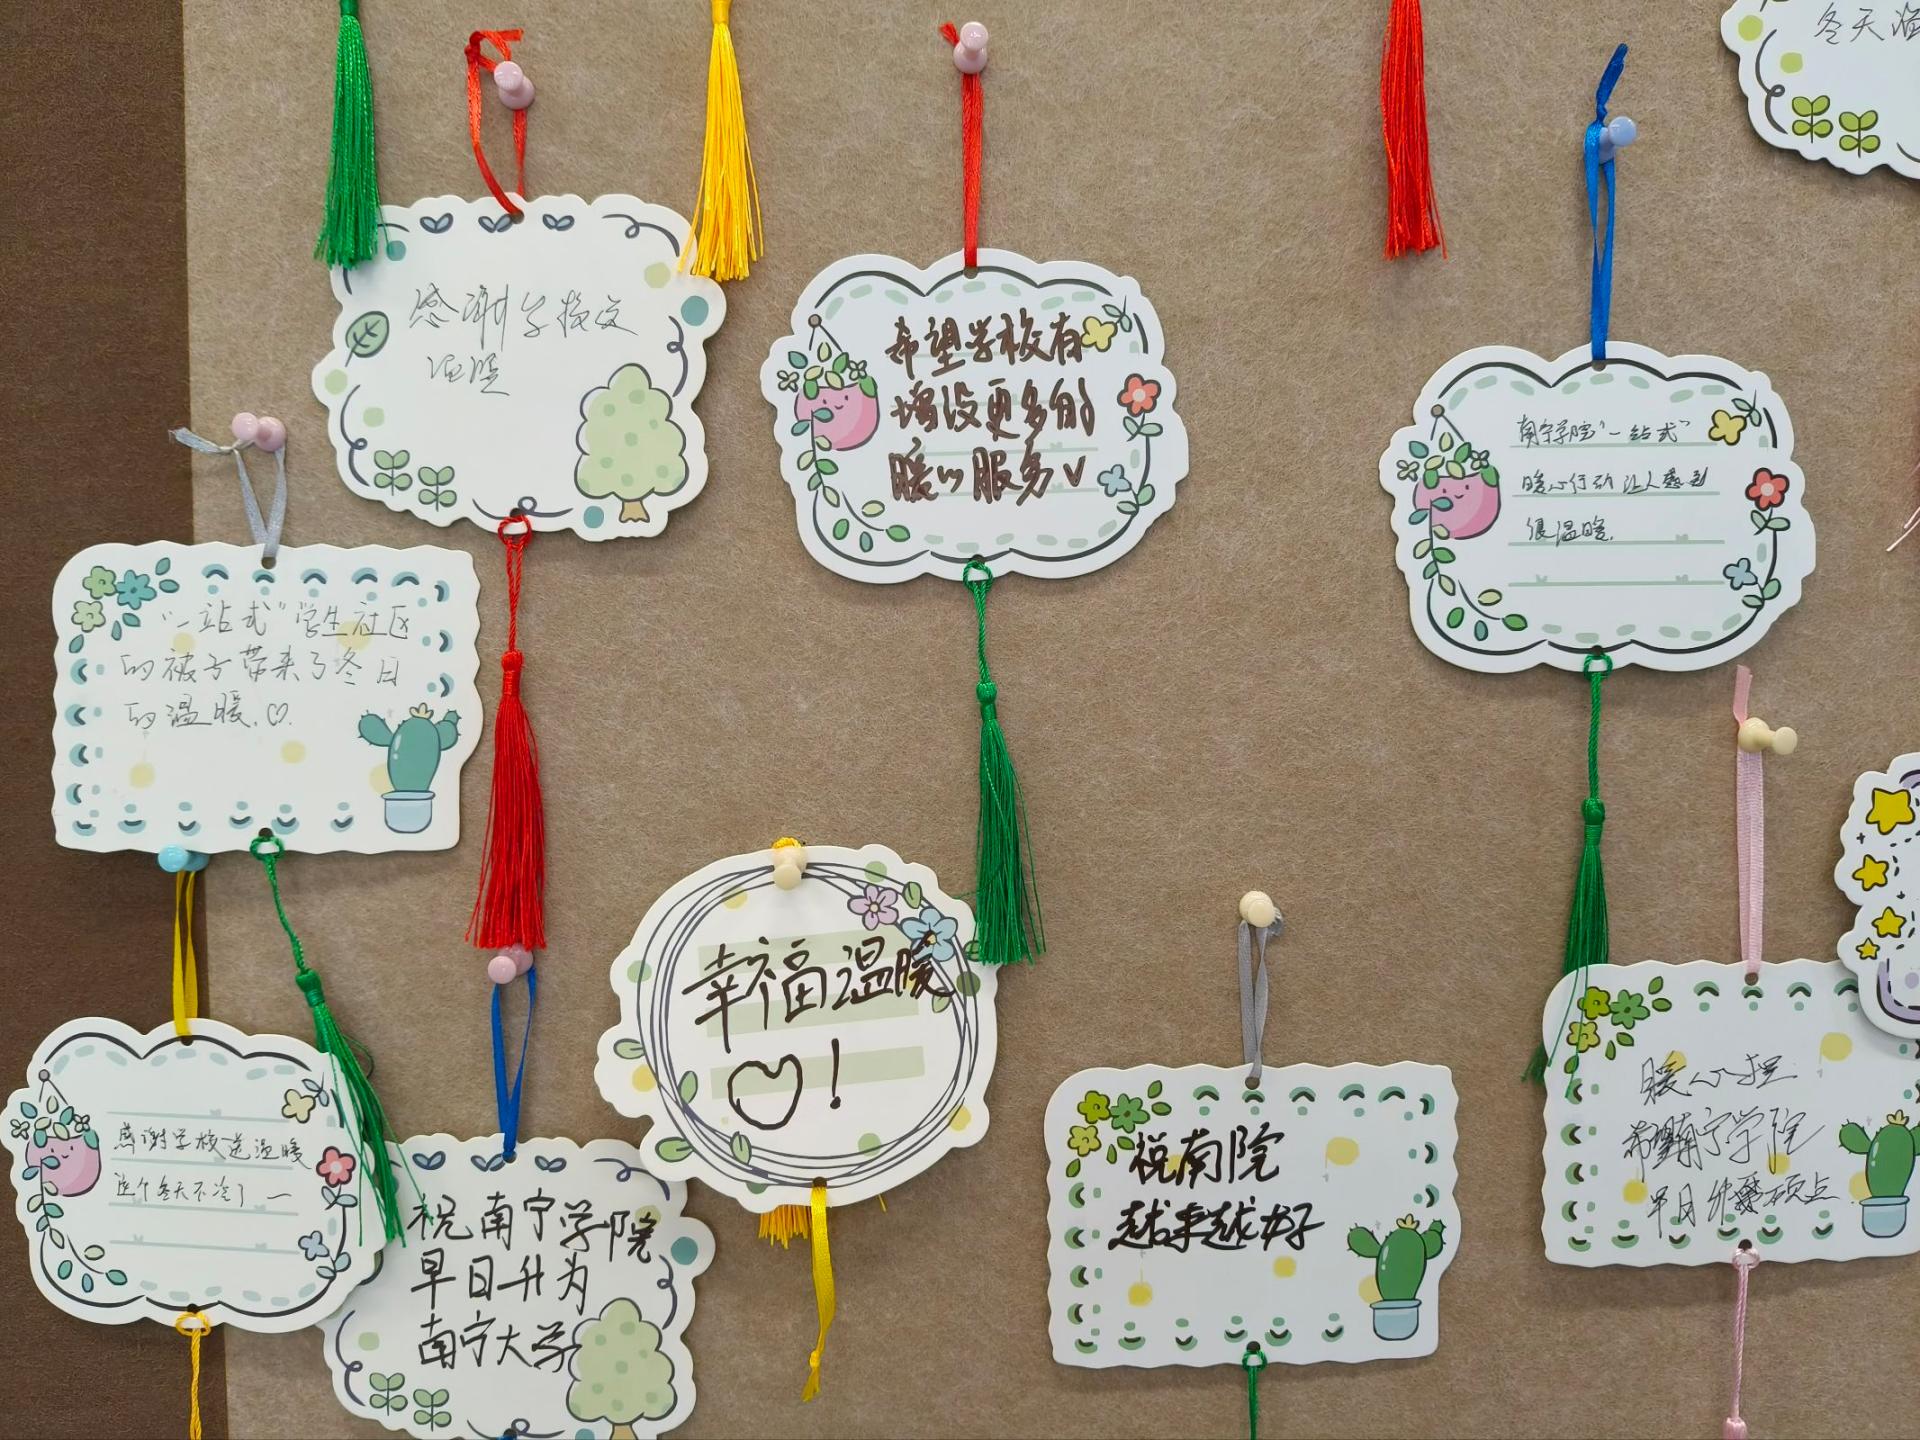 冬天温
感谢学校送
温暖
希望学校有
增设更多的
暖心服务
南宁学院"一站式"
暖心行动让人感到
很温暖.
"一站式"学生社区
的被子带来了冬日
的温暖.♡.
幸福温暖
♡!
感谢学校送温暖
这个冬天不冷了一
祝南宁学院
早日升为
南宁大学
祝南院
越来越好
暖心
希望南宁学院
早日升硕点